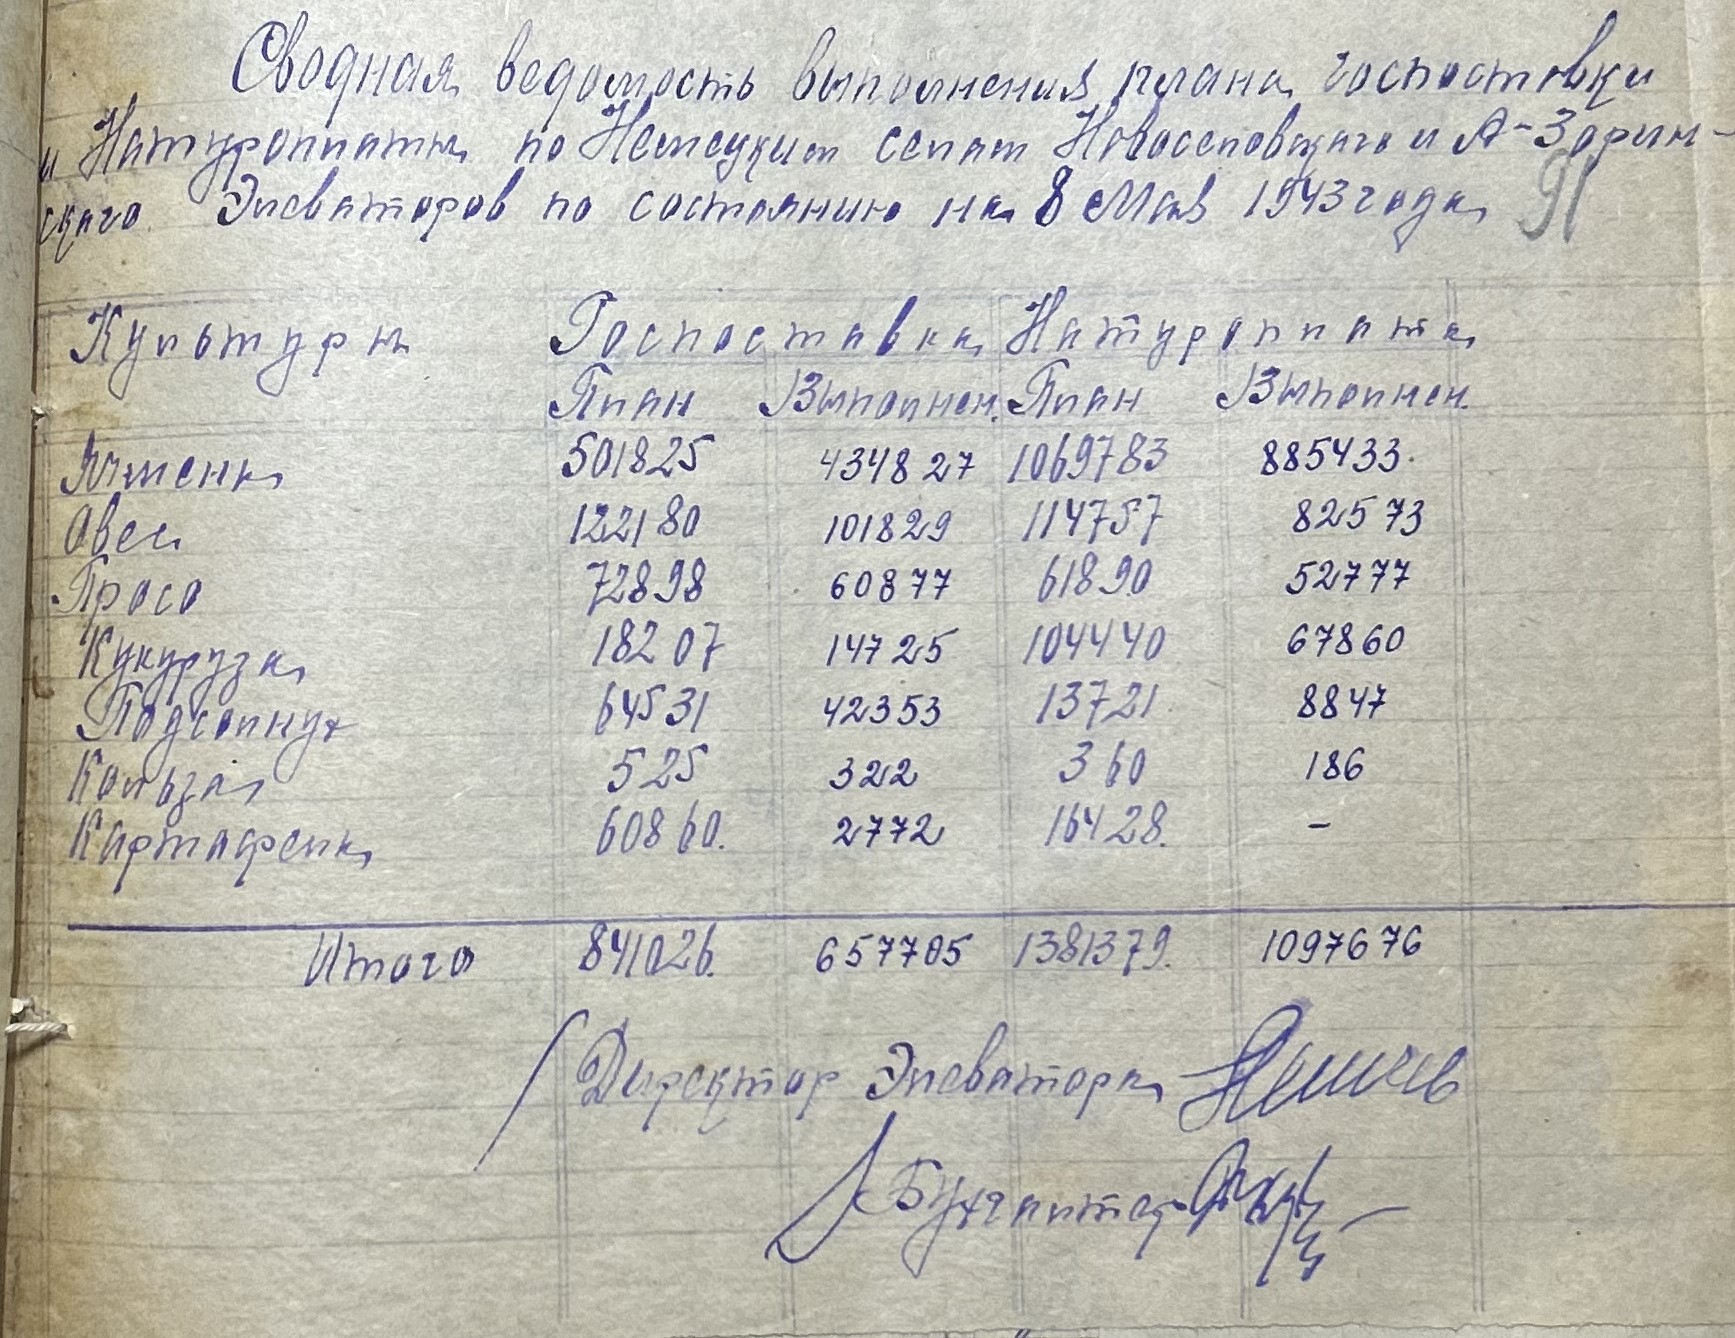 Сводная ведомость выполнения плана госпоставки
и Натуроплаты по Немецким селам Новоселовского и А-Зорин-
ского Элеваторов по состоянию на 8 Мая 1943 года 91
Культуры Госпоставка Натуроплата
План Выполнен. План Выполнен.
Ячмень 501825 434827 1069783 885433.
Овес 122180 101829 114757 82573
Просо 72898 60877 61890 52777
Кукуруза 18207 14725 104440 67860
Подсолнух 64531 42353 13721 8847
Кольза 525 322 360 186
Картофель 60860. 2772 16428. –
Итого 841026. 657705 1381379. 1097676
Директор Элеватора
Бухгалтер